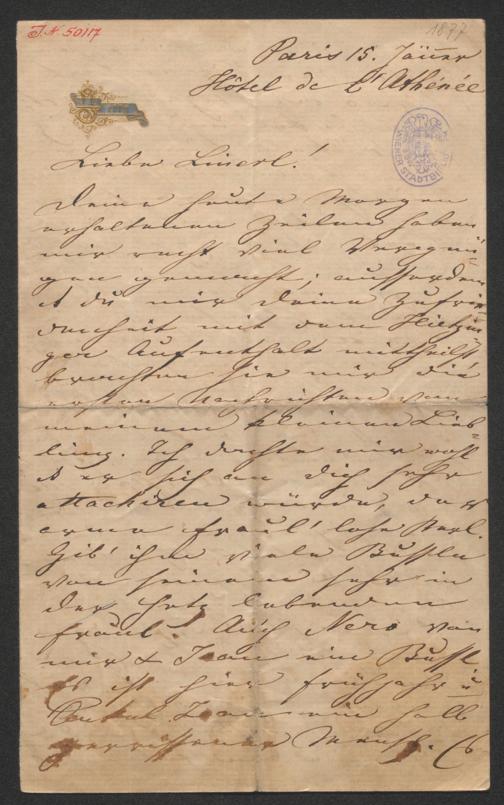 J.N. 50117
1877
Paris 15. Jänner
Hôtel de L'Athénée
WIENER STADTBI
Liebe Linerl!
Deine heute Morgen
erhaltenen Zeilen haben
mir recht viel Vergnü-
gen gemacht; ausserdem
du mir deine Zufrie-
denheit mit dem Hietzin-
ger Aufenthalt mittheilst,
brachten sie mir die
ersten Nachrichten von
meinem kleinen Lieb-
ling. Ich dachte mir wohl
er sich an dich sehr
attachiren würde, der
arme fraul' lose Kerl.
Gib' ihm viele Bussln
von seinem sehr in
der Hetz lebenden
Fraul. Auch Nero von
mir & Jean ein Bussl.
Es ist hier Frühjahr u
Onkel Jean ein halb
zerrissener Mensch.